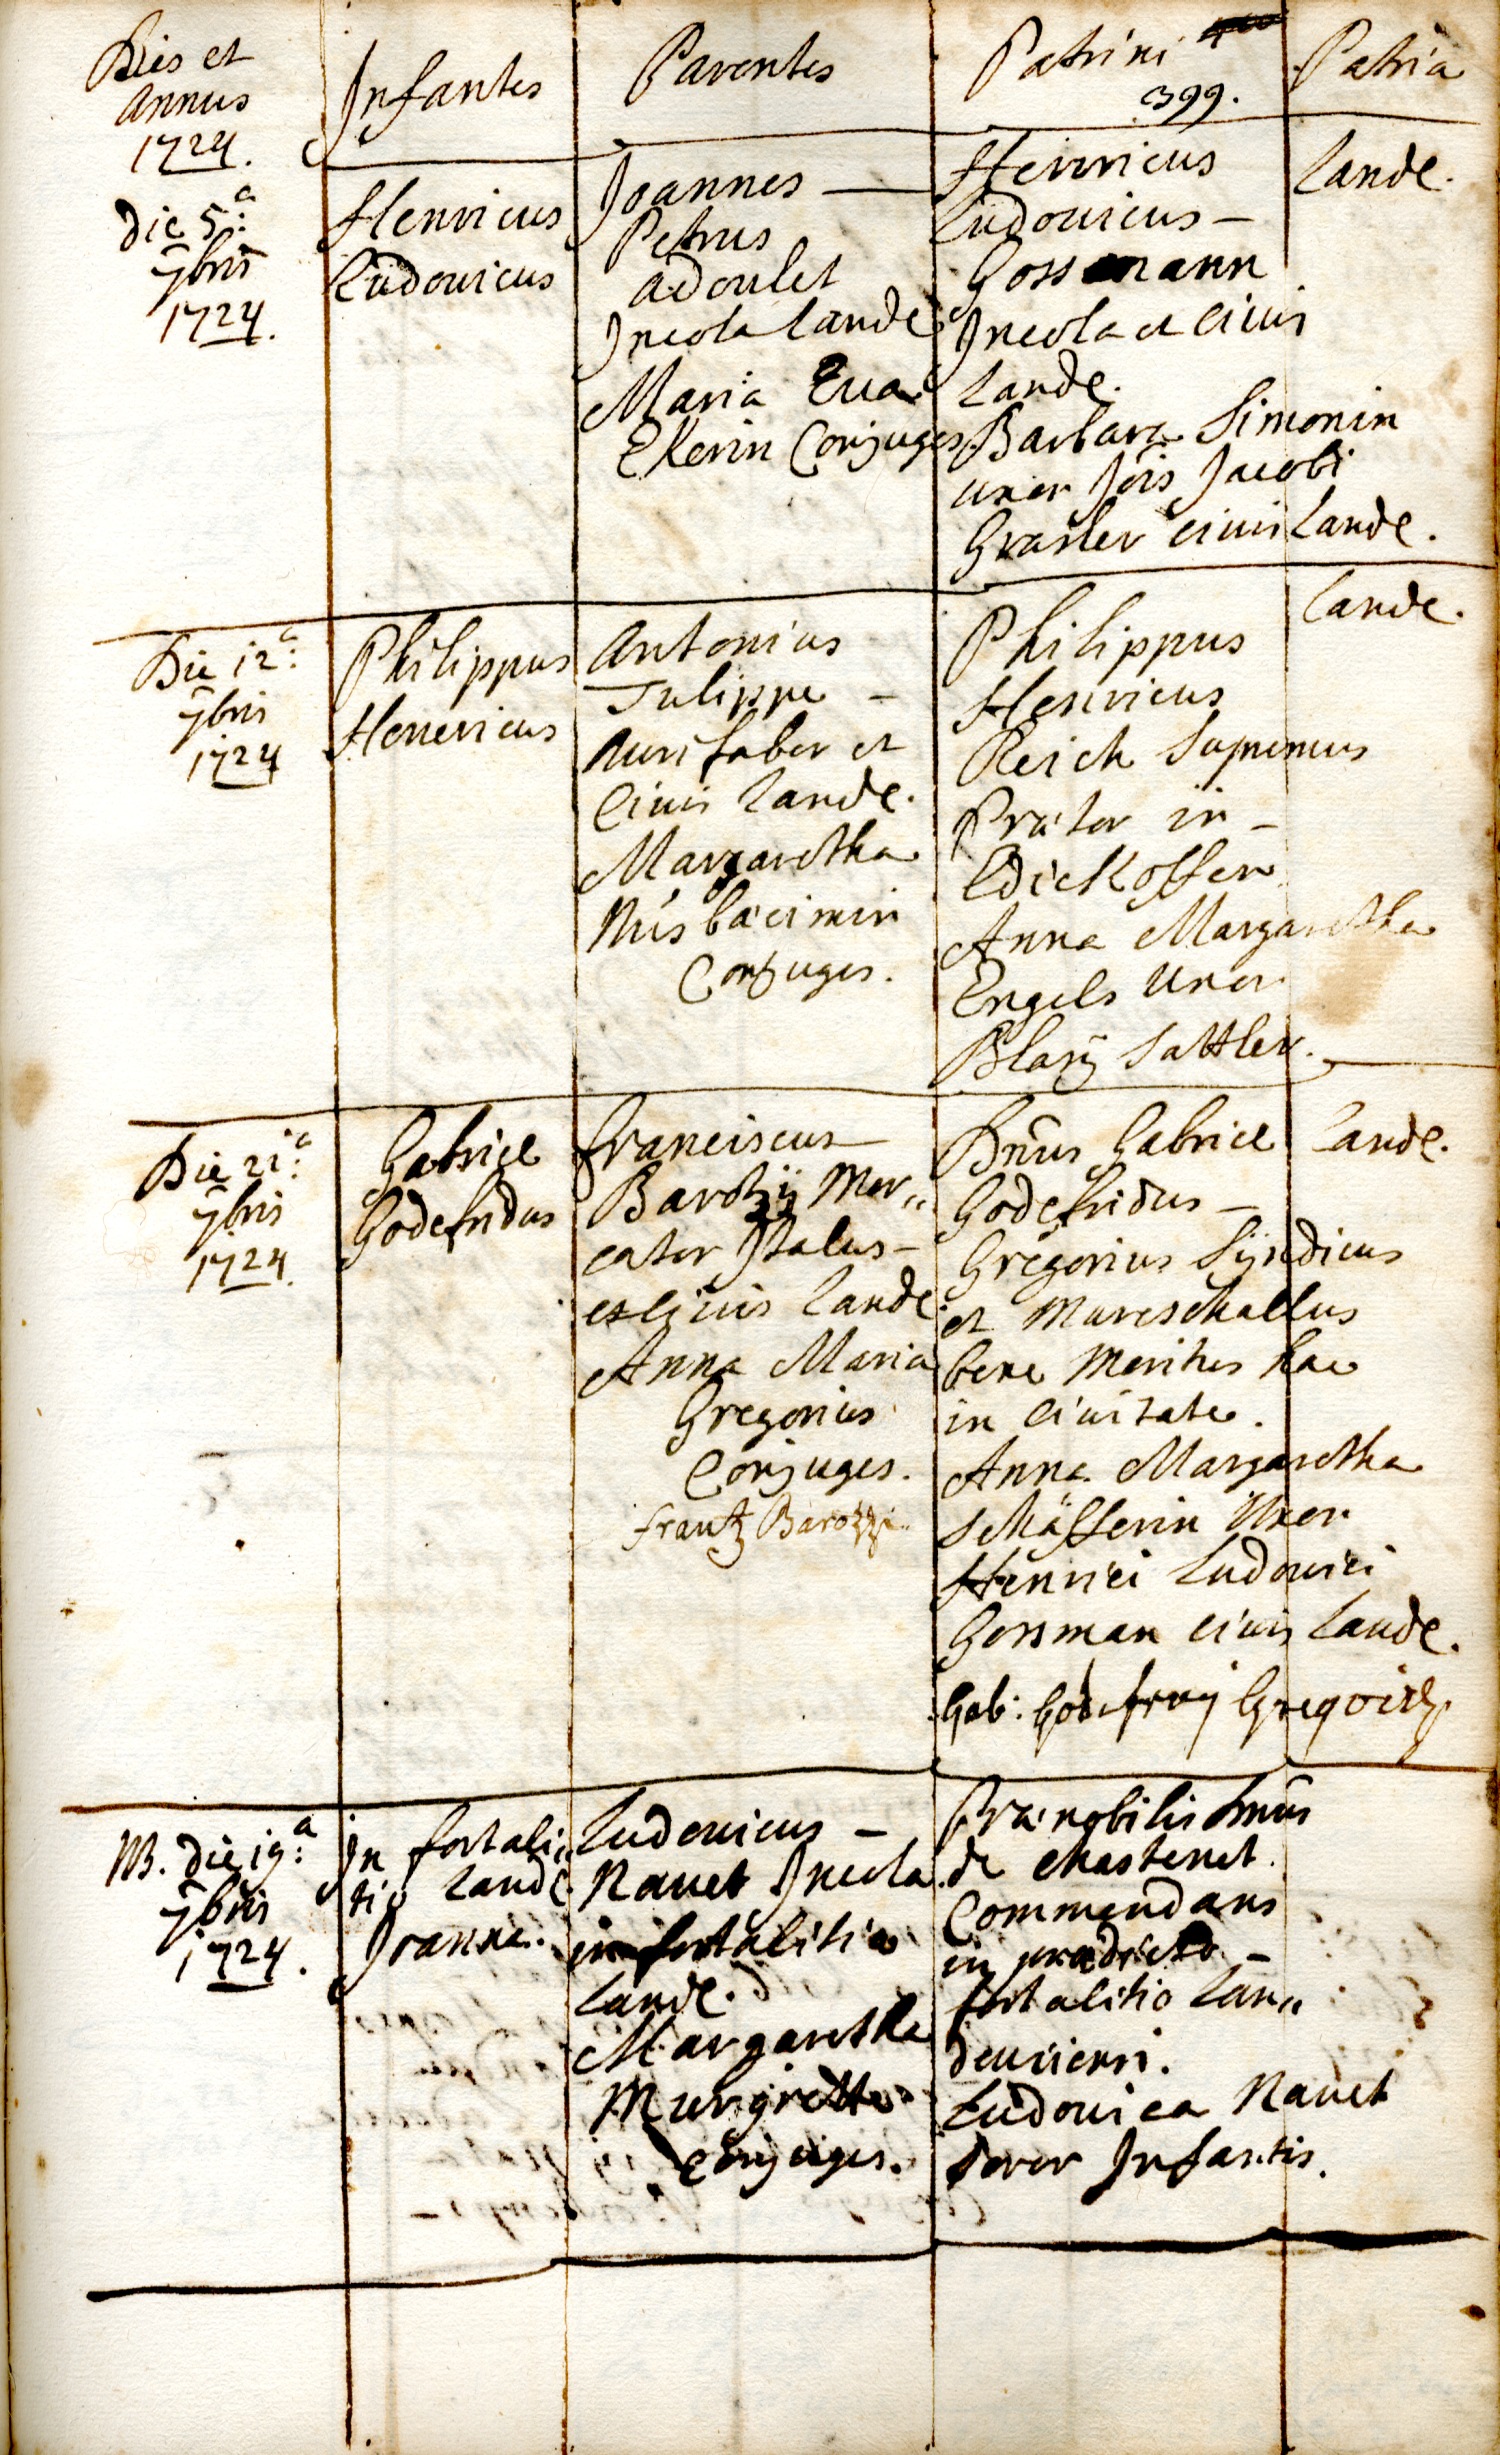 Dies et
annus
1724.
Infantes
Parentes
Patrini
399.
Patria
die 5.a
7bris
1724.
Henricus
Ludovicus
Joannes —
Petrus
adoulet
Incola Lande
Maria Eva
Ekerin Conjuges.
Henricus
Ludovicus —
Gossmann
Incola et Civis
Lande.
Barbara Simonin
uxor Jois Jacobi
Grasler civis Lande.
Lande.
Die 12.a
7bris
1724
Philippus
Henericus
Antonius
Tulippe —
Aurifaber et
Civis Lande.
Margaretha
Conjuges.
Philippus
Henricus
Reich Supremus
Prætor in —
Edickoffen
Anna Margaretha
Engels Uxor
Blasÿ Sattler.
Lande.
Die 21.a
7bris
1724.
Gabriel
Godefridus
Franciscus —
Barotzij Mer„
cator Italus —
et Civis Lande
Anna Maria
Gregorius
Conjuges.
frantz Barozzi
Dnus Gabriel
Godefridus —
Gregorius Sÿndicus
et Mareschallus
bene Meritus hac
in Civitate.
Anna Margaretha
Schäfferin Uxor
Henrici Ludovici
Gossman civis Lande.
Gab: Godefroy
Lande.
NB. die 19.a
7bris
1724.
In fortali„
tio Lande.
Joanna.
Ludovicus —
Navet Incola
in fortalitio
Lande.
Margaretha
Murgrette
Conjuges.
Prænobilis Dnus
de Chastenet.
Commendans
in prædicto —
fortalitio Lan„
daviensi.
Ludovica Navet
Soror Infantis.